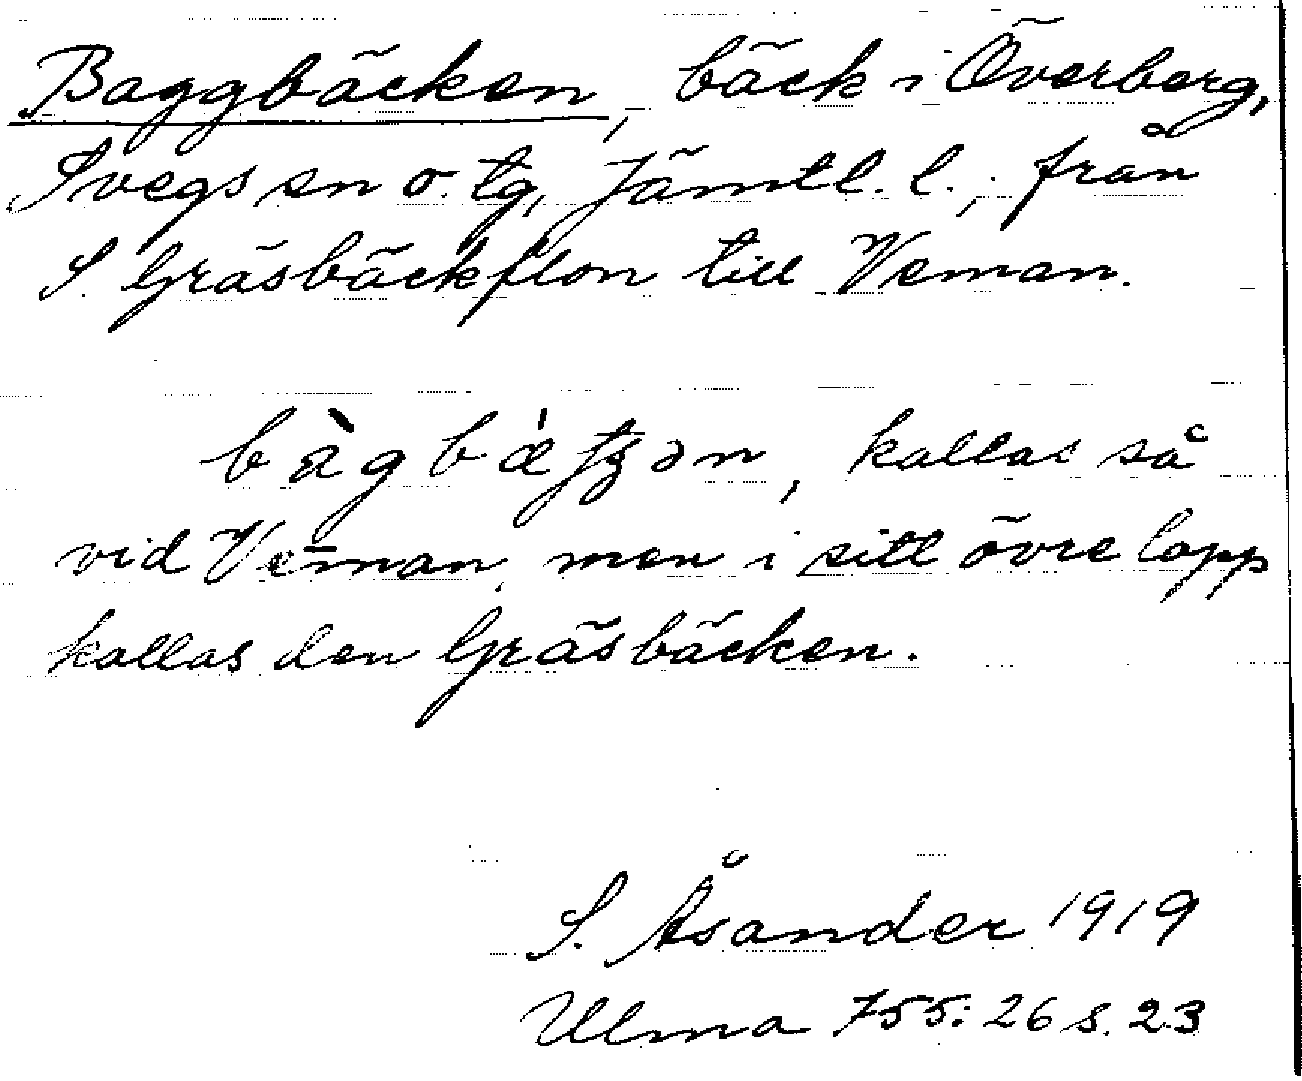 Baggbäcken, bäck i Överberg,
Svegs sn o. tg, Jämtl. l., från
S. Gräsbäckflon till Veman.
bàgbæ̀tʃən, kallas så
vid Veman, men i sitt övre lopp
kallas den Gräsbäcken.
S. Åsander 1919
Ulma 755:26 s. 23